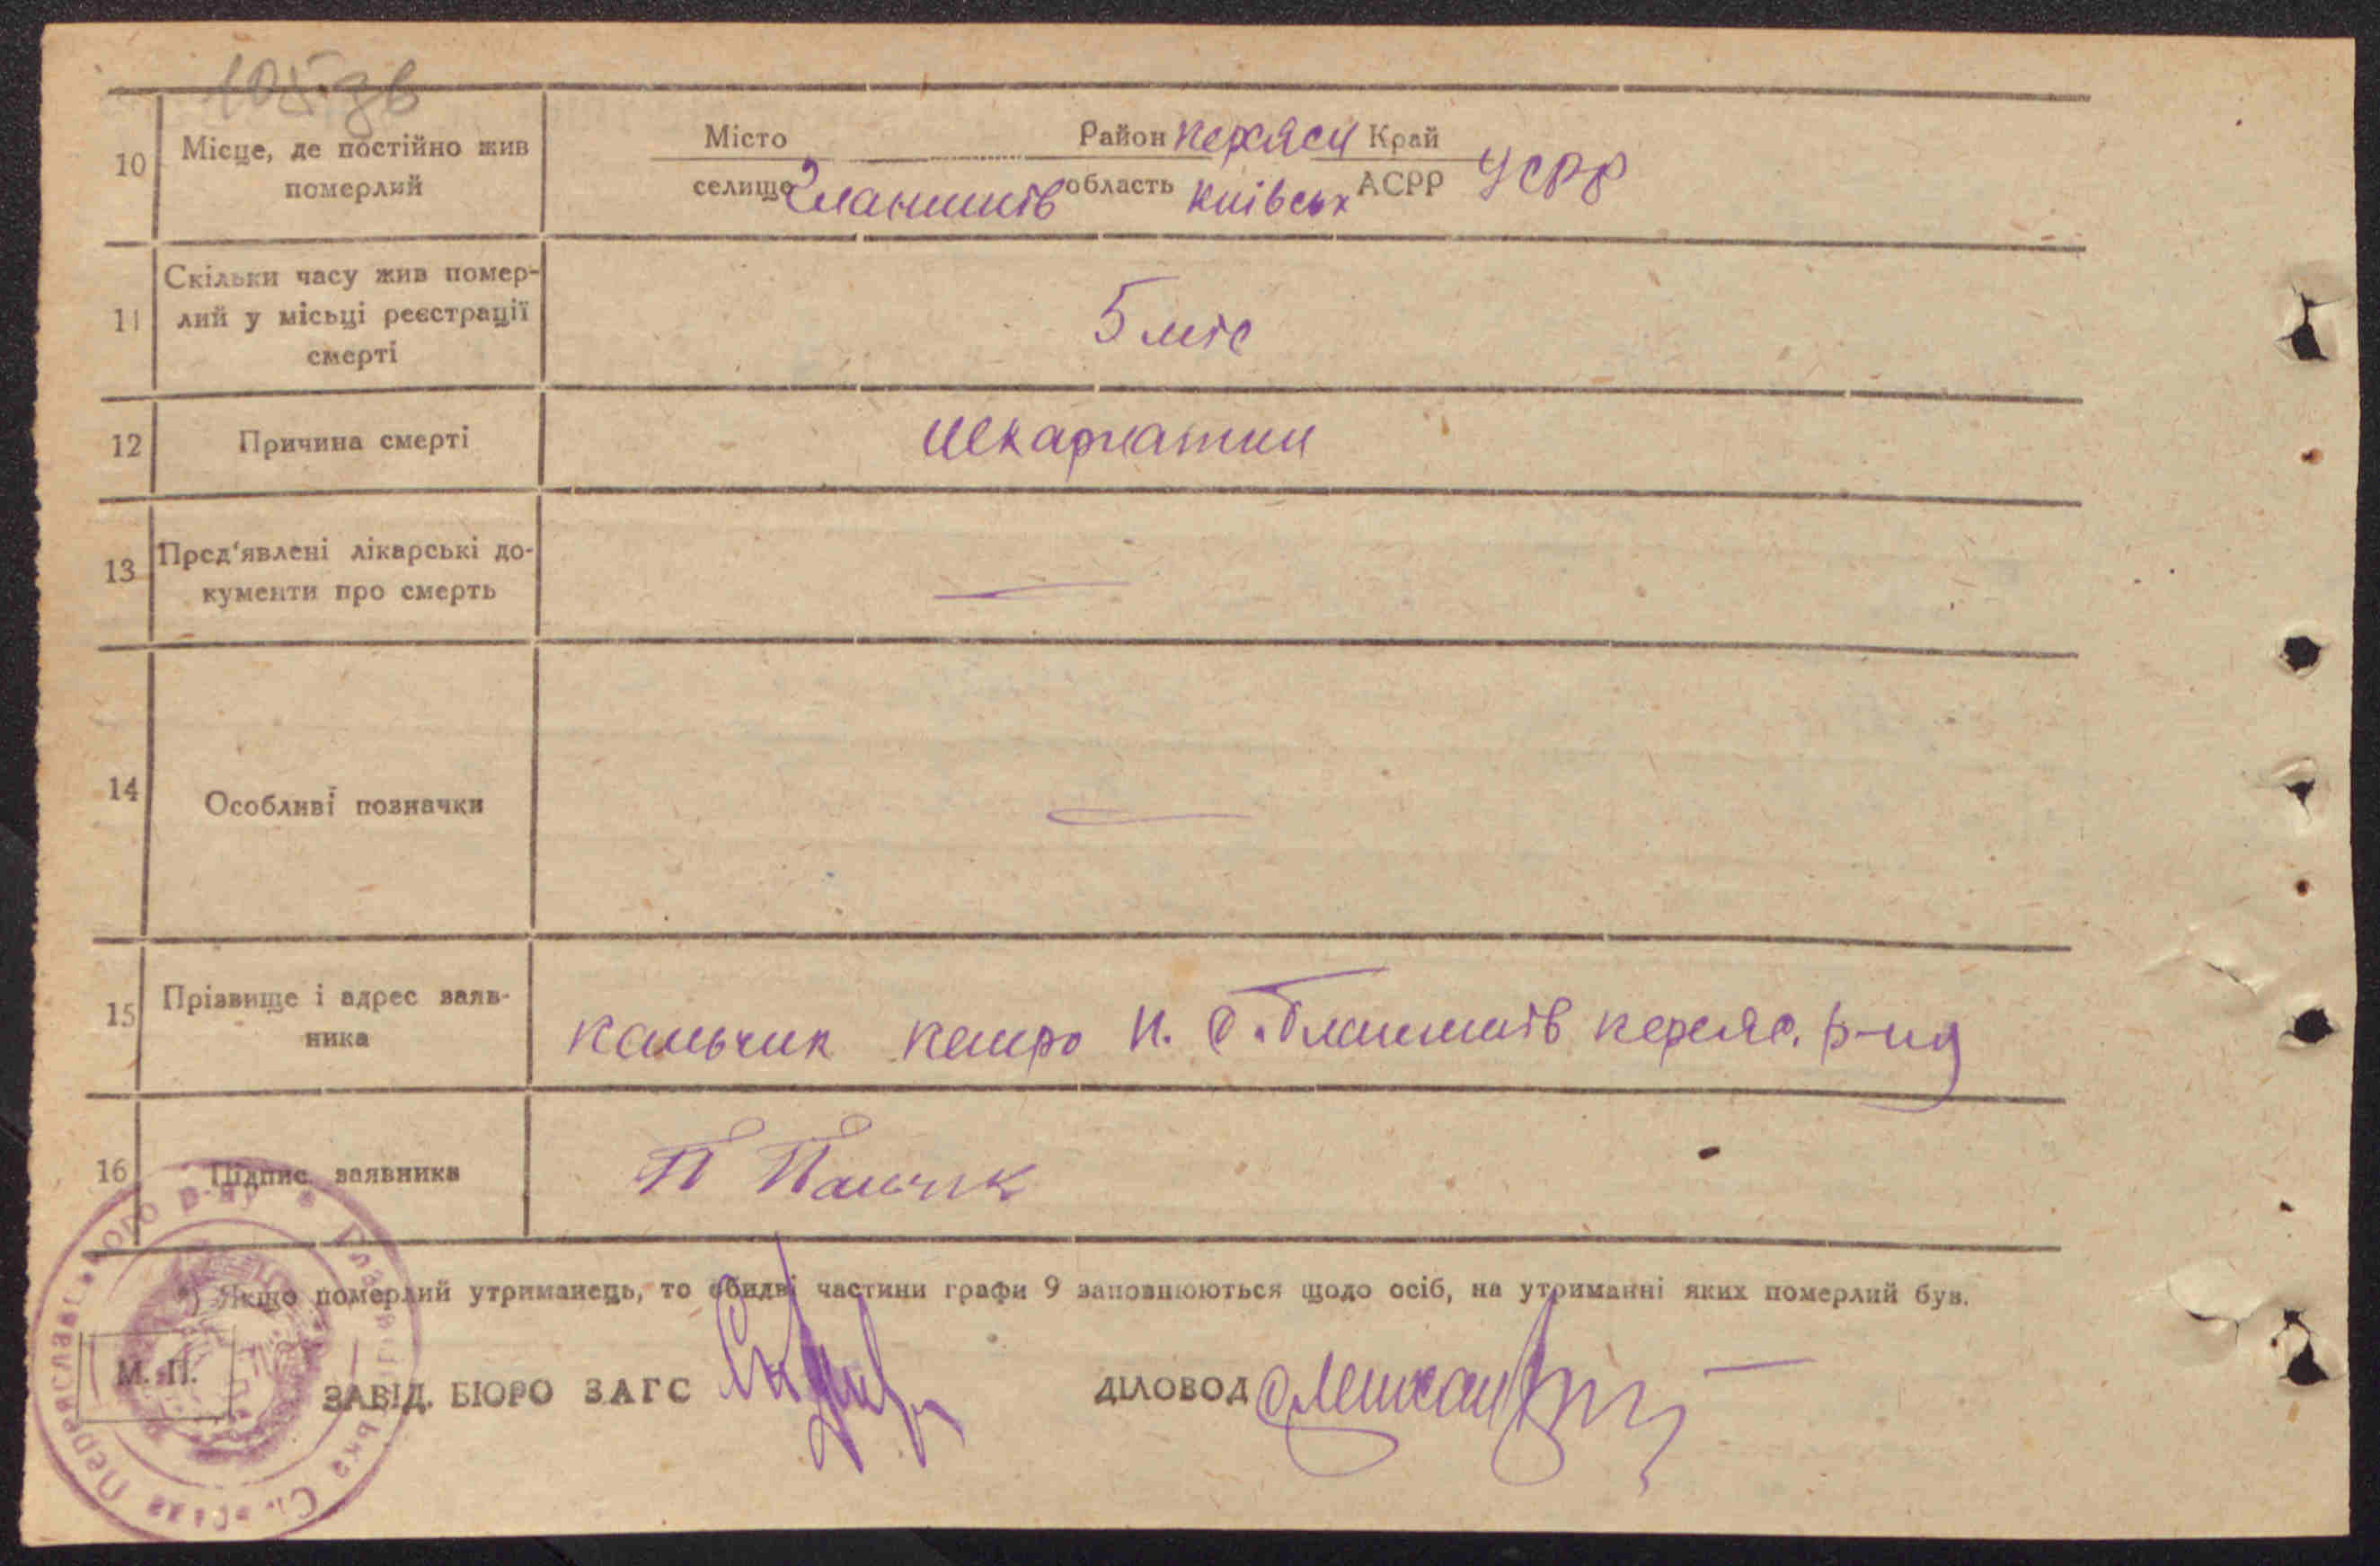 105зв
10 Місце, де постійно жив
померлий
Місто Район Переясл Край
селище Гланишів область Київськ АСРР УСРР
11 Скільки часу жив помер-
лий у місьці реєстрації
смерті
5 міс
12 Причина смерті шкарлатин
13 Пред'явлені лікарські до-
кументи про смерть
—
14 Особливі позначки —
15 Прізвище і адрес заяв-
ника
Пальчик П. с. Гланишів Переяс. р-ну
16 Підпис заявника П Пальчик
*) Якщо померлий утриманець, то обидві частини графи 9 заповнюються щодо осіб, на утриманні яких померлий був.
М. П.
ЗАВІД. БЮРО ЗАГС ДІЛОВОД